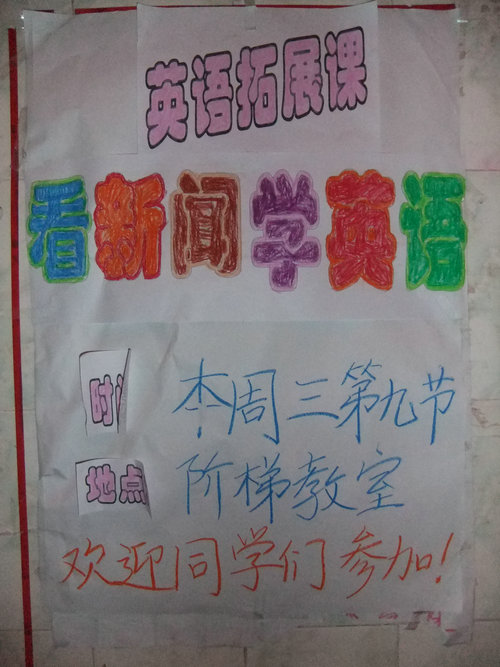 英语拓展课
看新闻学英语
时间 本周三第九节
地点 阶梯教室
欢迎同学们参加!